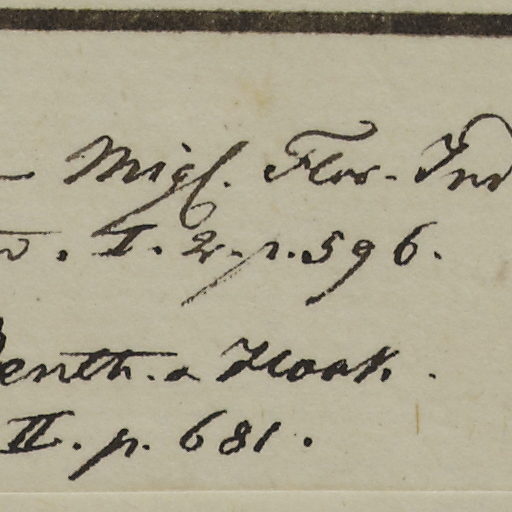 Miql. Flor. Ind
. I. 2. p. 596.
Benth. a Hook.
II. p. 681.